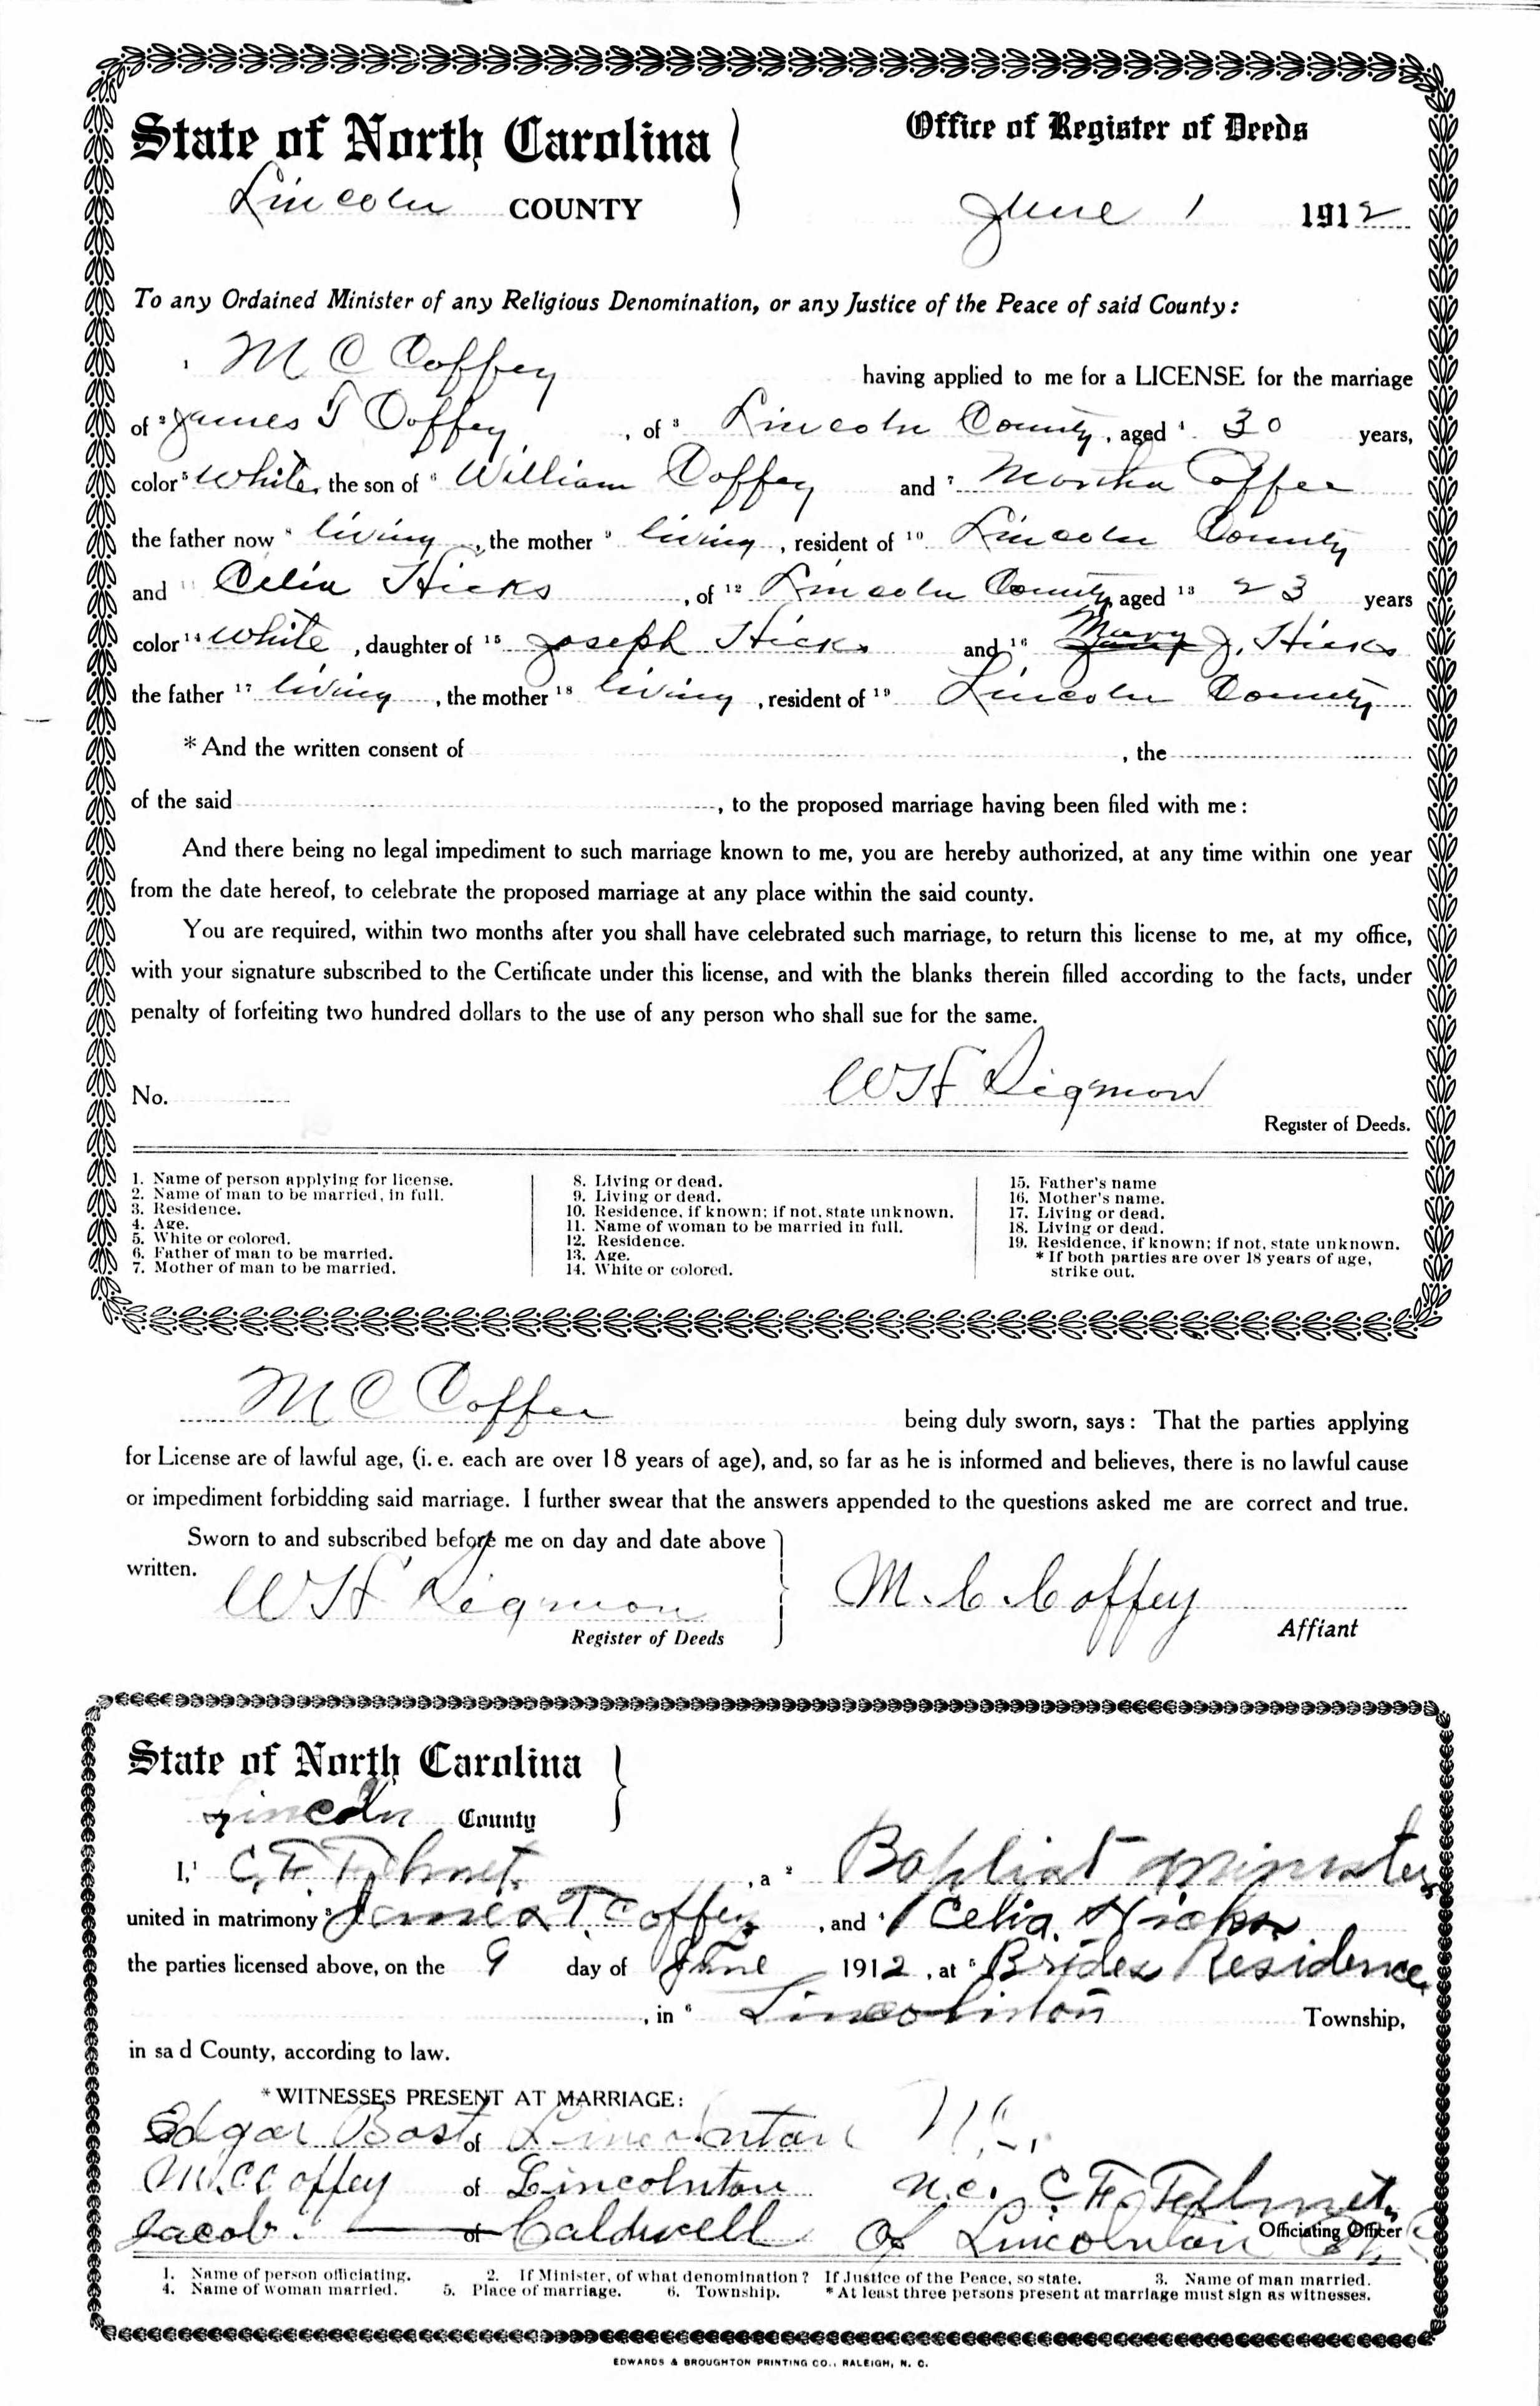 State of North Carolina
Office of Register of Deeds
Lincoln COUNTY
June 1 1912
To any Ordained Minister of any Religious Denomination, or any Justice of the Peace of said County:
1 M C Coffey having applied to me for a LICENSE for the marriage
of 2 James T Coffey, of 3 Lincoln County, aged 4 30 years,
color 5 White, the son of 6 William Coffey and 7 Martha Coffee
the father now 8 living, the mother 9 living, resident of 10 Lincoln County
and 11 Celia Hicks, of 12 Lincoln County, aged 13 23 years
color 14 White, daughter of 15 Joseph Hicks and 16 Mary J. Hicks
the father 17 living, the mother 18 living, resident of 19 Lincoln County
* And the written consent of , the
of the said , to the proposed marriage having been filed with me:
And there being no legal impediment to such marriage known to me, you are hereby authorized, at any time within one year
from the date hereof, to celebrate the proposed marriage at any place within the said county.
You are required, within two months after you shall have celebrated such marriage, to return this license to me, at my office,
with your signature subscribed to the Certificate under this license, and with the blanks therein filled according to the facts, under
penalty of forfeiting two hundred dollars to the use of any person who shall sue for the same.
W H Sigmon
No.
Register of Deeds.
1. Name of person applying for license.
2. Name of man to be married, in full.
3. Residence.
4. Age.
5. White or colored.
6. Father of man to be married.
7. Mother of man to be married.
8. Living or dead.
9. Living or dead.
10. Residence, if known; if not, state unknown.
11. Name of woman to be married in full.
12. Residence.
13. Age.
14. White or colored.
15. Father's name
16. Mother's name.
17. Living or dead.
18. Living or dead.
19. Residence, if known; if not, state unknown.
* If both parties are over 18 years of age,
strike out.
M C Coffee being duly sworn, says: That the parties applying
for License are of lawful age, (i. e. each are over 18 years of age), and, so far as he is informed and believes, there is no lawful cause
or impediment forbidding said marriage. I further swear that the answers appended to the questions asked me are correct and true.
Sworn to and subscribed before me on day and date above
written.
W H Sigmon
Register of Deeds
M. C. Coffey
Affiant
State of North Carolina
Lincoln County
I, 1 C. F. , a 2 Baptist minister
united in matrimony 3 James T. Coffey, and 4 Celia Hicks
the parties licensed above, on the 9 day of June 1912, at 5 Brides Residence
, in 6 Lincolnton Township,
in sa d County, according to law.
* WITNESSES PRESENT AT MARRIAGE:
Edgar Bost of Lincolnton N.C.
M. C Coffey of Lincolnton N.C. C. F.
Jacob. of Caldwell Of Lincolnton
Officiating Officer
1. Name of person officiating. 2. If Minister, of what denomination? If Justice of the Peace, so state. 3. Name of man married.
4. Name of woman married. 5. Place of marriage. 6. Township. * At least three persons present at marriage must sign as witnesses.
EDWARDS & BROUGHTON PRINTING CO., RALEIGH, N. C.